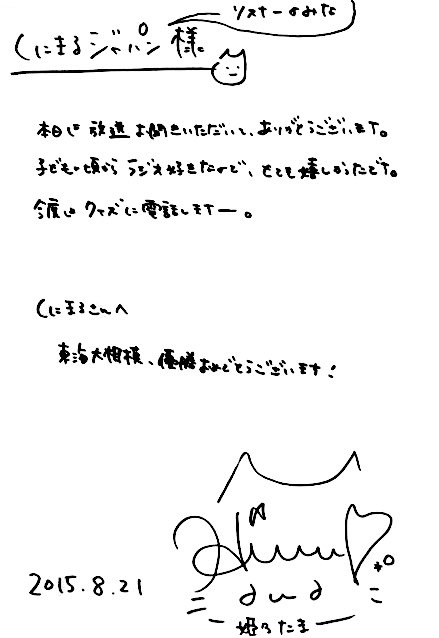 リスナーのみな
くにまるジャパン 様
本日は 放送お聞きいただいて、ありがとうございます。
子どもの頃から ラジオ好きなので、とても嬉しかったです。
今度は クイズに電話しますー。
くにまるさんへ
東海大相模、優勝おめでとうございます!
2015.8.21
姫乃たま